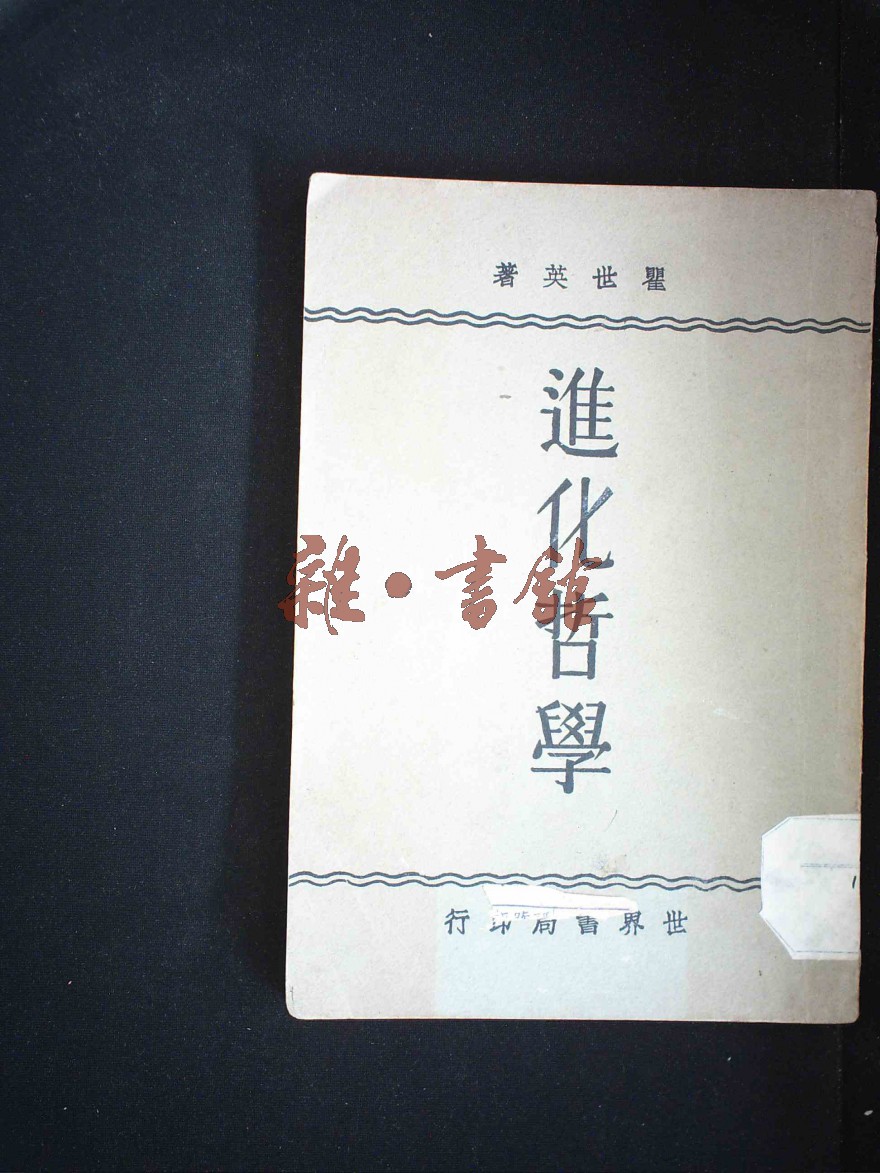 瞿世英著
進化哲學
雜·書館
世界書局印行